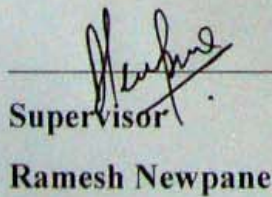 Supervisor
Ramesh Newpane